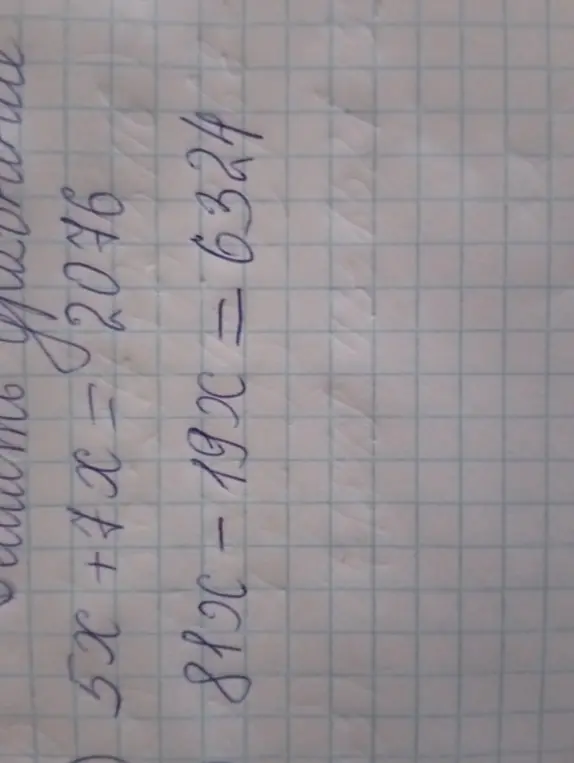 Решить уравнение
5x + 7x = 2076
81x - 19x = 6324